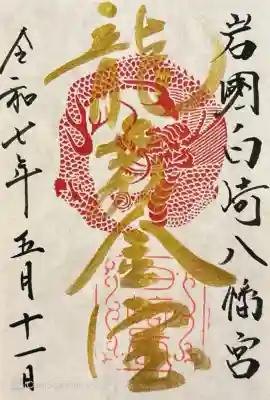 岩國白崎八幡宮
龍
金
令和七年 五月十一日